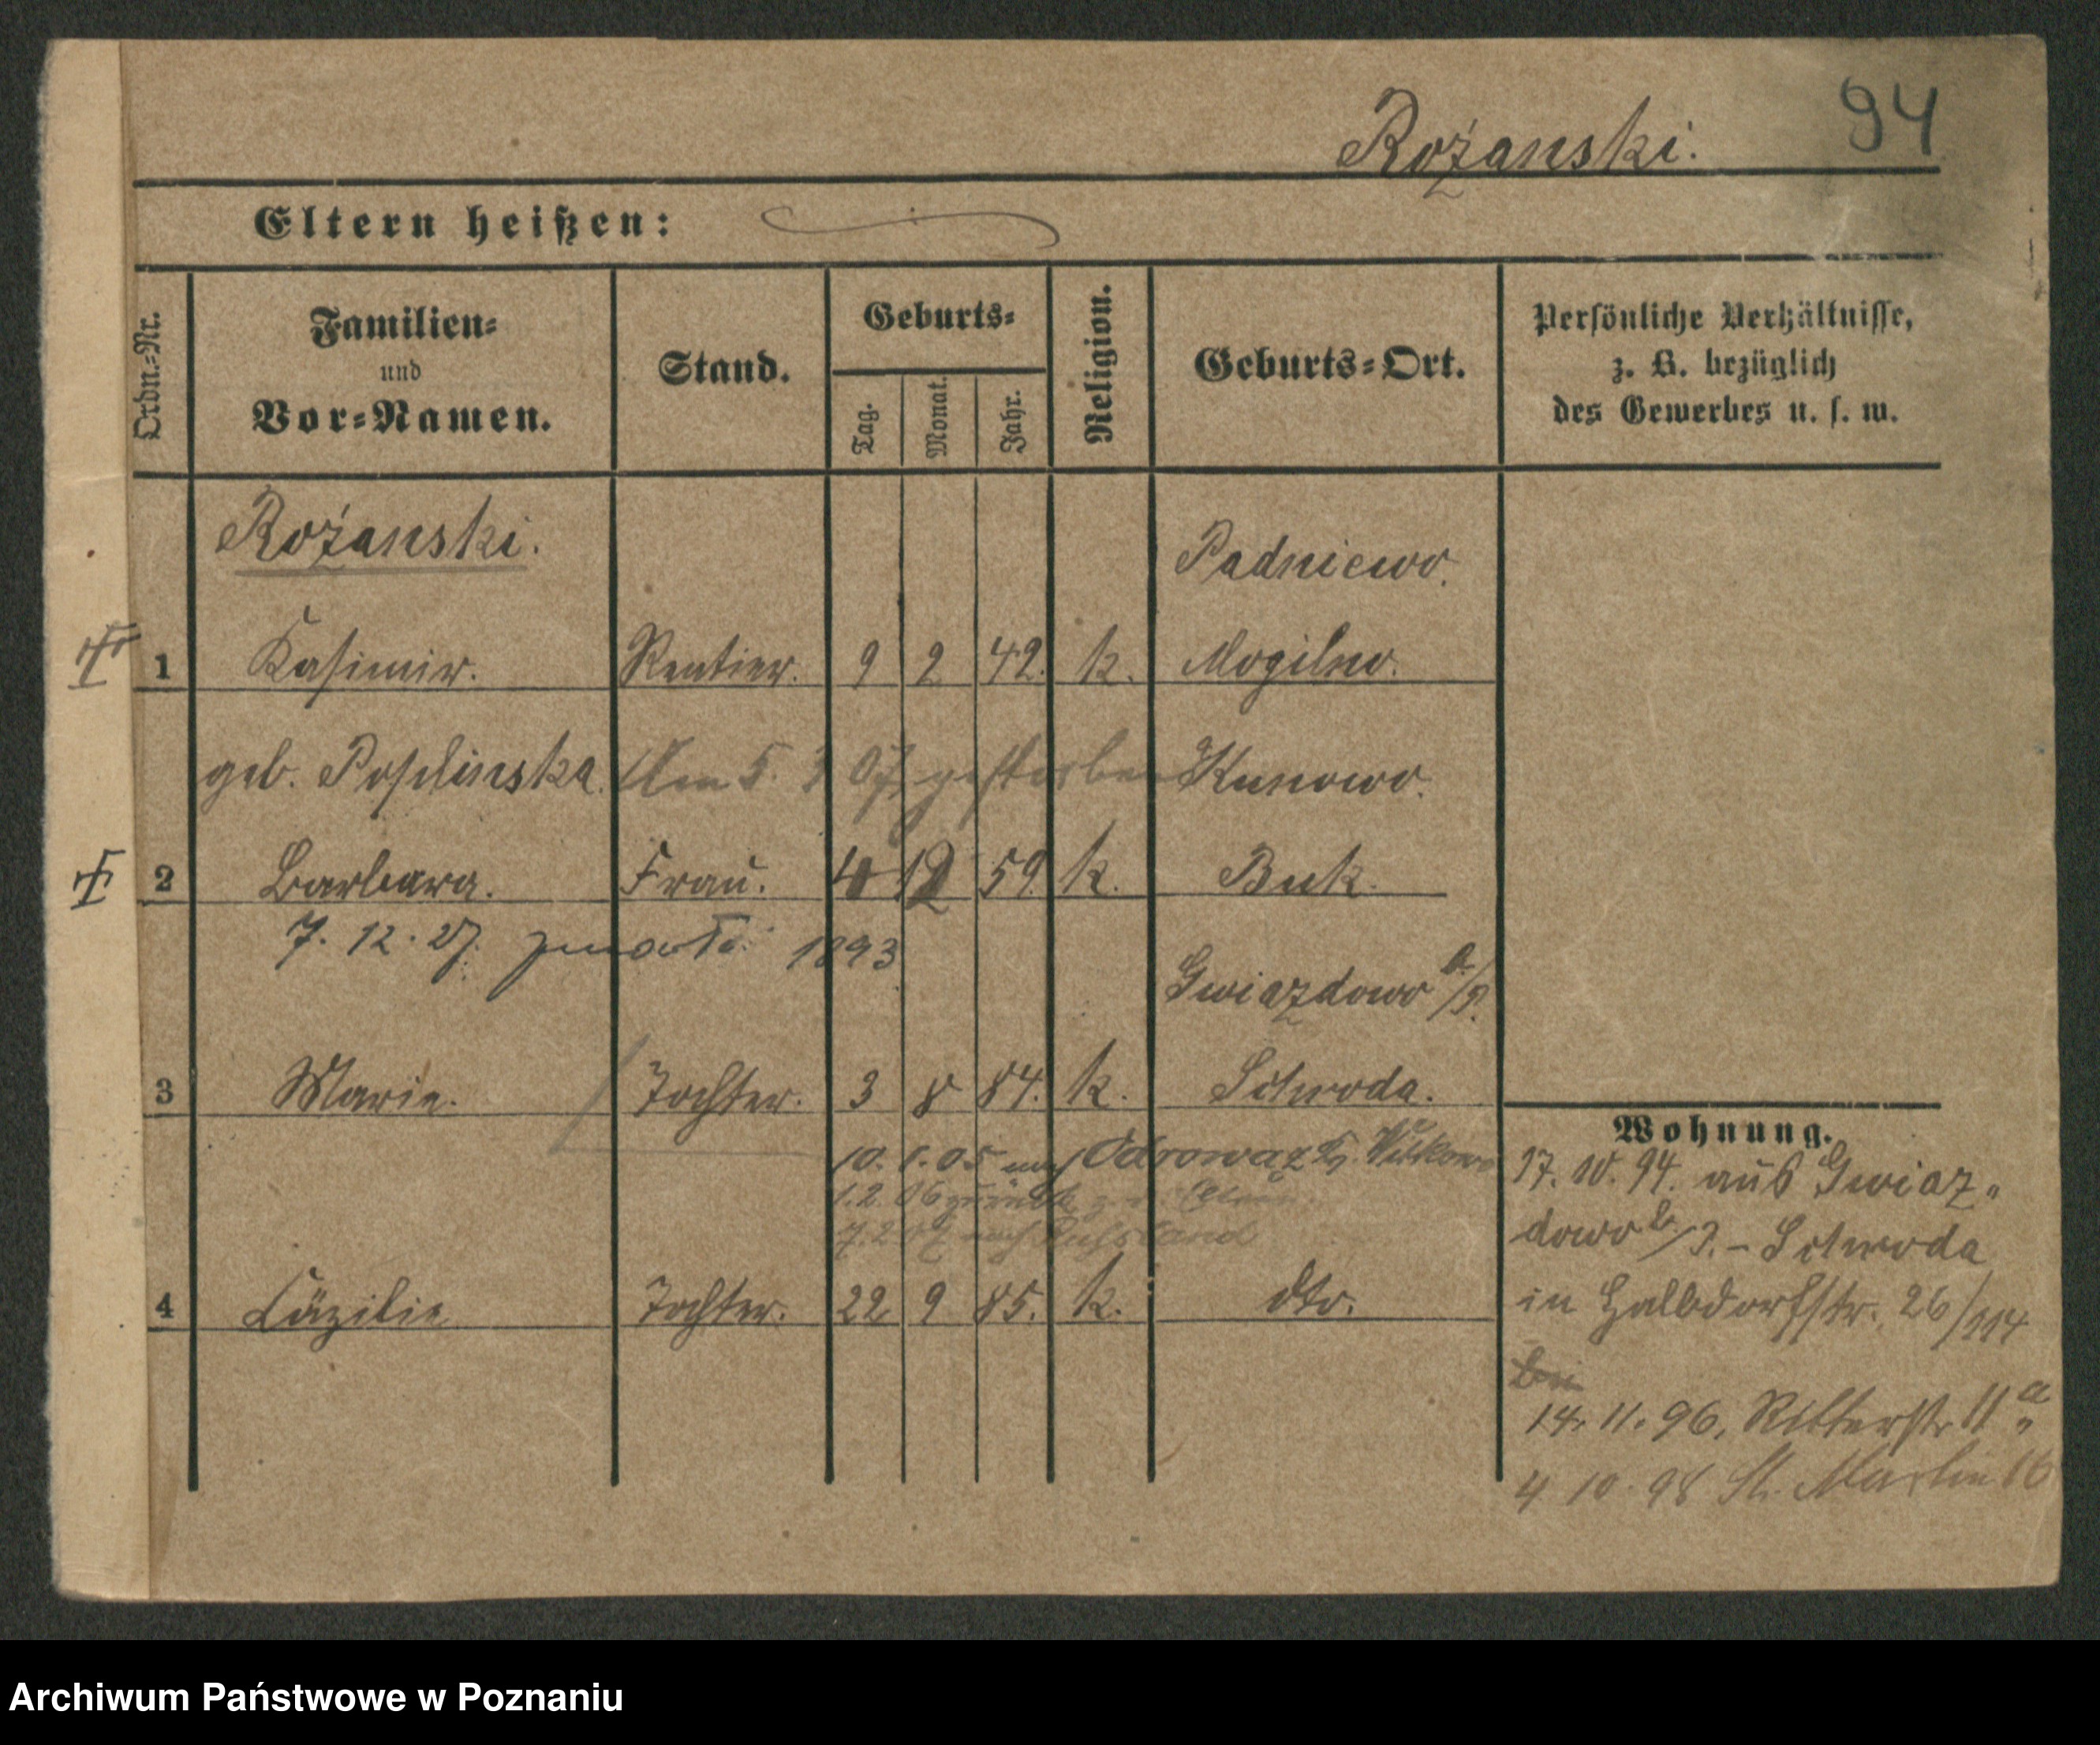 Rożanski. 94
Eltern heißen:
Ordn.-Nr.
Familien-
und
Vor-Namen.
Stand.
Geburts-
Tag.
Monat.
Jahr.
Religion.
Geburts-Ort.
Persönliche Verhältnisse,
z. B. bezüglich
des Gewerbes u. s. w.
Rożanski. Padniewo.
1 Kasimir. Rentier. 9 2 42. k. Mogilno.
geb. Poplinska. Am 5. 07 gestorben Kunowo.
2 Barbara. Frau. 4 12 59. k. Buk.
7. 12. 27. 1893
Gwiazdowo b/P.
3 Marie. Tochter. 3 8 84. k. Schroda.
10. 1. 05 nach Odrowaz Kr. Witkowo
1.2.06 zurück z. d. Eltern.
7.2.07 nach Rußland
4 Cäzilie Tochter. 22 9 85. k. dto.
Wohnung.
17. 10. 94. aus Gwiaz„
dowo b/P. – Schroda
in Halbdorfstr. 26/114
bei
14. 11. 96. Ritterstr 11 a„
4 10. 98 St. Martin 16
Archiwum Państwowe w Poznaniu